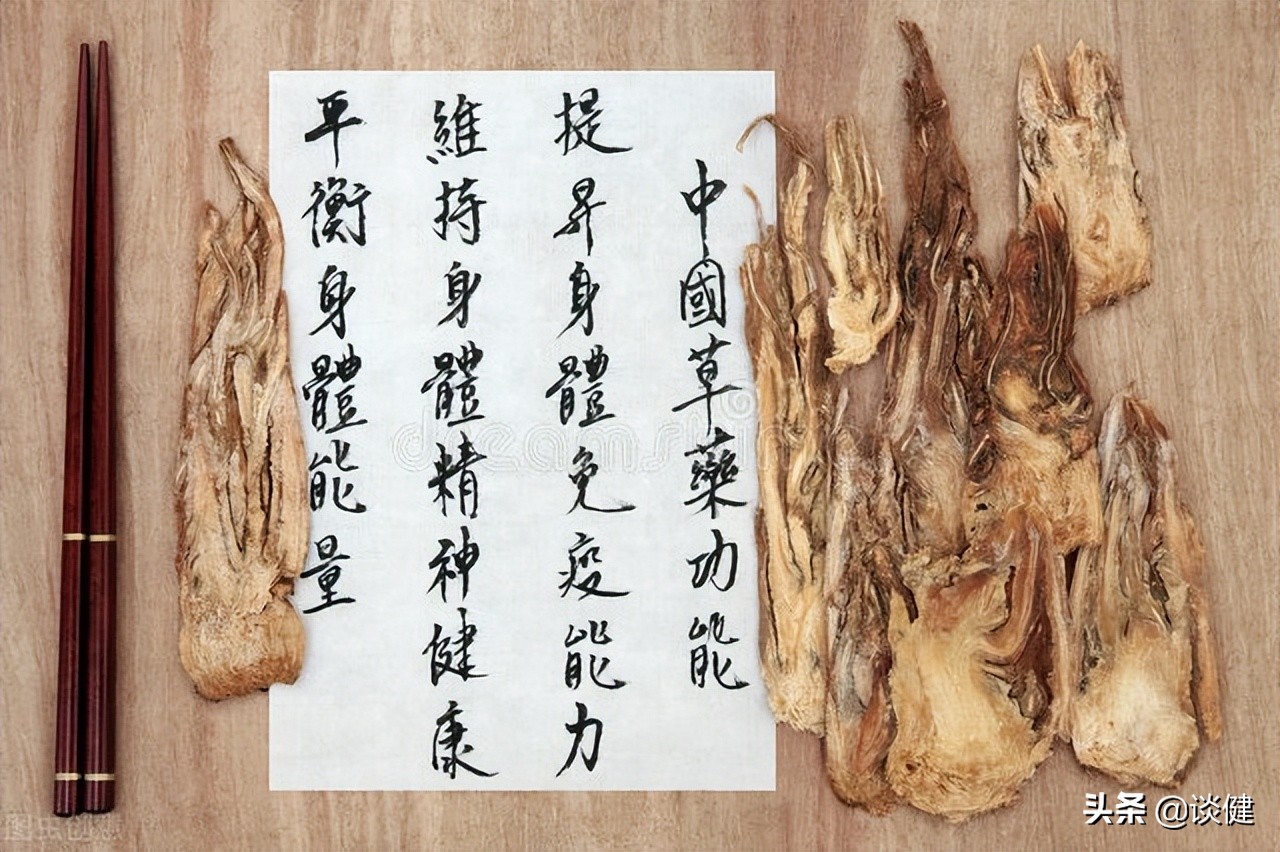 中國草藥功能
提昇身體免疫能力
維持身體精神健康
平衡身體能量
dreamstime
头条 @谈健